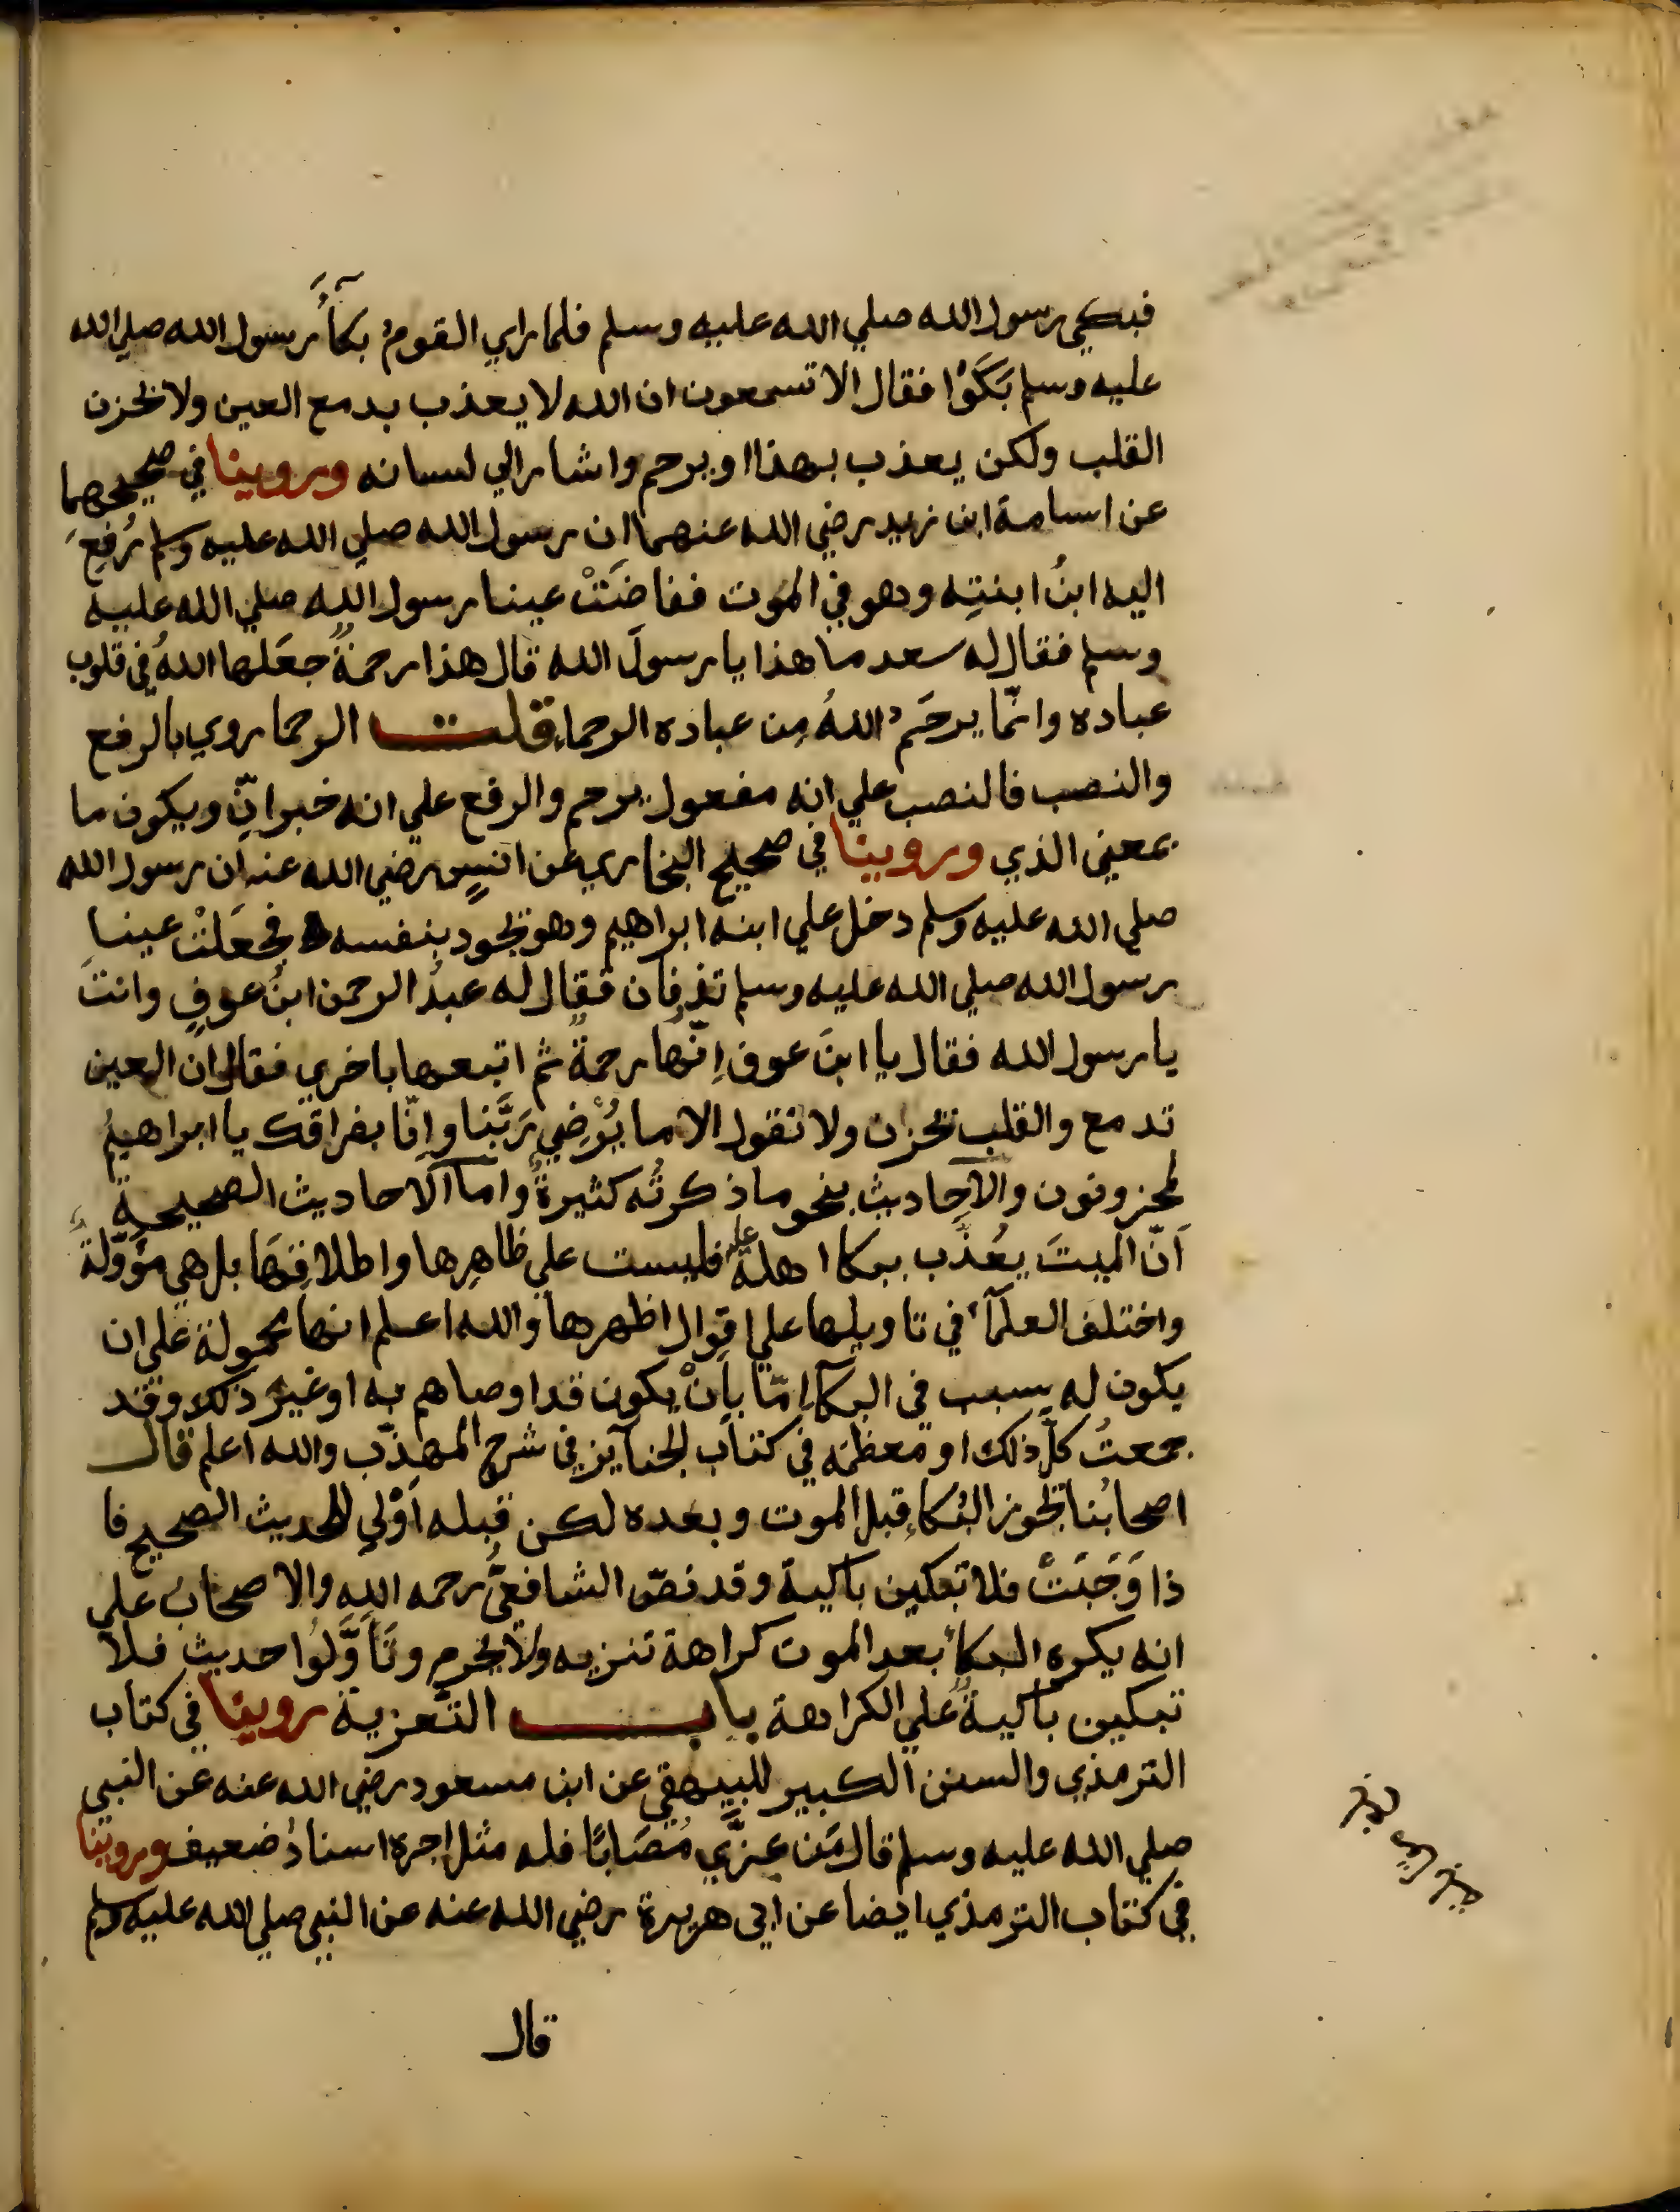 فبكي رسول الله صلي الله عليه وسلم فلما راي القومُ بكآأُ رسول الله صلي الله
عليه وسلم بَكَوْا فقال الا تسمعون ان الله لا يعذب بدمع العين ولا بحزن
القلب ولكن يعذب بهذا او يرحم واشار الي لسانه وروينا في صحيحهما
عن اسامة ابن زيد رضي الله عنهما ان رسول الله صلي الله عليه وسلم رُفِعَ
اليه ابنُ ابنتِه وهو في الموت ففاضَتْ عينا رسول الله صلي الله عليه
وسلم فقال له سعد ما هذا يا رسولَ الله قال هذا رحمةٌ جعَلها اللهُ في قلوب
عباده وانّما يرحَمُ اللهُ مِن عباده الرحماء قلت الرحما روي بالرفع
والنصب فالنصب علي انه مفعول يرحم والرفع علي انه خبر انّ ويكون ما
بمعني الذي وروينا في صحيح البخاري عن انسٍ رضي الله عنه ان رسول الله
صلي الله عليه وسلم دخل علي ابنه ابراهيم وهو يجود بنفسه فجعَلتْ عينا
رسول الله صلي الله عليه وسلم تذرفان فقال له عبدُ الرحمن ابنُ عوفٍ وانتَ
يا رسول الله فقال يا ابنَ عوف اِنّها رحمةٌ ثم اتبعها باخري فقال ان العين
تدمع والقلب يحزن ولا نقول الا ما يُرْضِي رَبَّنا واِنّا بفراقك يا ابراهيمُ
لمحزونون والاحاديث بنحو ما ذكرتُه كثيرةٌ واما الاحاديث الصحيحة
اَنّ الميتَ يعُذَّب ببكا اهلهَ عليه فليست علي ظاهِرها واطلاقِهَا بل هي مؤوّلةٌ
واختلف العلمآءُ في تاويلها علي اقوال اظهرها والله اعلم انها محمولة علي ان
يكون له سبب في البكآءِ اِمّا بِاَنْ يكون قد اوصاهم به او غير ذلك وقد
جمعتُ كلّ ذلك او معظمه في كتاب الجنآيز في شرح المهذّب والله اعلم قال
اصحابُنا يجوز البُكاءِ قبل الموت وبعده لكن قبله اَوْلي للحديث الصحيح فا
ذا وَجَبَتْ فلا تبكين باكية وقد نصّ الشافعيُّ رحمه الله والاصحاب علي
انه يكره البكاُ بعد الموت كراهة تنزيه ولا يحرم وتَأَوَّلُوا حديث فلا
تبكين باكيةٌ علي الكراهة باب التّعزية روينا في كتاب
الترمذي والسنن الكبير للبيهقي عن ابن مسعود رضي الله عنه عن النبي
صلي الله عليه وسلم قال مَن عزَّي مُصَابًا فله مثل اجره اسنادُ ضعيف وروينا
في كتاب الترمذي ايضا عن ابي هريرة رضي الله عنه عن النبي صلي الله عليه وسلم
قال